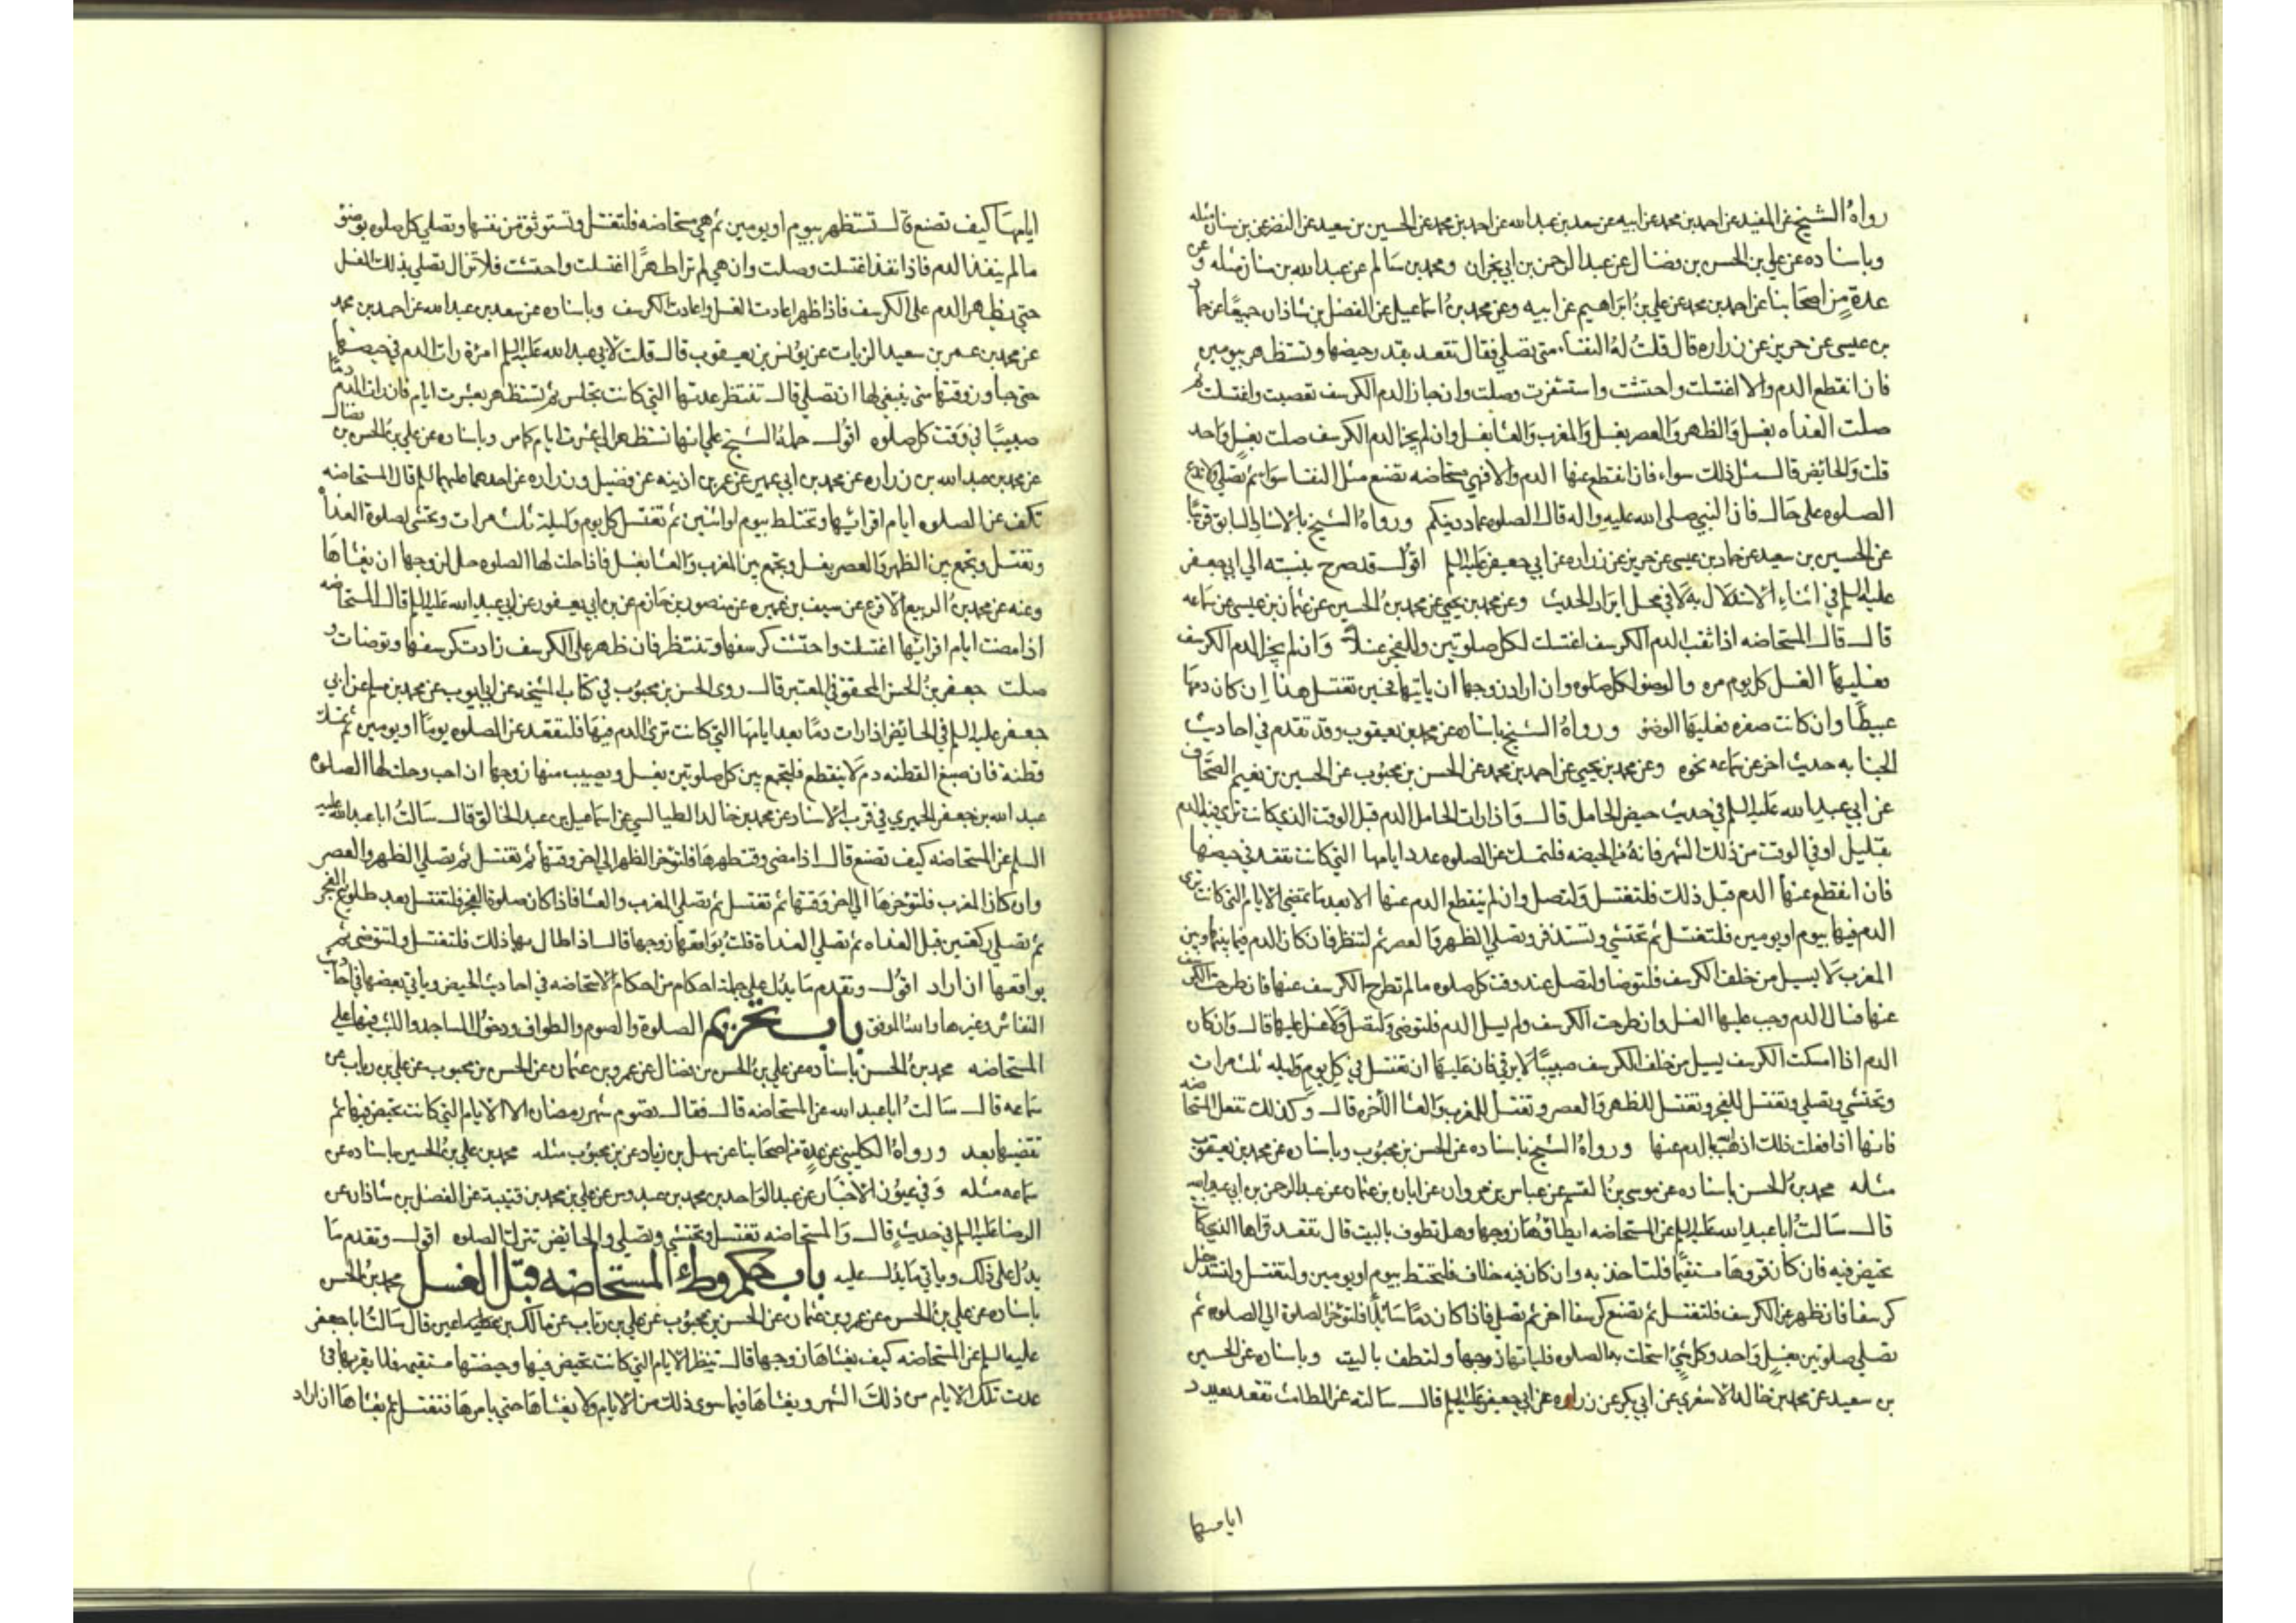 رواه الشيخ عن المفيد عن احمد بن محمد عن ابيه عن سعد بن عبد الله عن احمد بن محمد عن الحسين بن سعيد عن النضر عن بن سنان مثله
وباسناده عن علي بن الحسن بن فضال عن عبد الرحمن بن ابي نجران ومحمد بن سالم عن عبد الله بن سنان مثله وعن
عدة من اصحابنا عن احمد بن محمد عن علي بن ابراهيم عن ابيه وعن محمد بن اسماعيل عن الفضل بن شاذان جميعا عن حماد
بن عيسى عن حريز عن زراره قال قلت له النفساء متى تصلي فقال تقعد بقدر حيضها وتستظهر بيومين
فان انقطع الدم والا اغتسلت واحتشت واستثفرت وصلت وان جاز الدم الكرسف تعصبت واغتسلت ثم
صلت الغداه بغسل والظهر والعصر بغسل والمغرب والعشا بغسل وان لم يجز الدم الكرسف صلت بغسل واحد
قلت والحائض قال مثل ذلك سواء فان انقطع عنها الدم والا فهي مستحاضه تصنع مثل النفسا سواء ثم تصلي ولا تدع
الصلوه على حال فان النبي صلى الله عليه واله قال الصلوه عماد دينكم ورواه الشيخ بالاسناد السابق قريبا
عن الحسين بن سعيد عن حماد بن عيسى عن حريز عن زراره عن ابي جعفر عليه السلم اقول قد صرح بنسبته الى ابي جعفر
عليه السلم في اثناء الاستدلال به لا في محل ايراد الحديث وعن محمد بن يحيى عن محمد بن الحسين عن عثمان بن عيسى عن سماعه
قال قال المستحاضه اذا ثقب الدم الكرسف اغتسلت لكل صلوتين وللفجر غسلا وان لم يجز الدم الكرسف
فعليها الغسل كل يوم مره والوضوء لكل صلوه وان اراد زوجها ان ياتيها فحين تغتسل هذا ان كان دمها
عبيطا وان كانت صفره فعليها الوضوء ورواه الشيخ باسناده عن محمد بن يعقوب وقد تقدم في احاديث
الجنابه حديث اخر عن سماعه نحوه وعن محمد بن يحيى عن احمد بن محمد عن الحسن بن محبوب عن الحسين بن نعيم الصحاف
عن ابي عبد الله عليه السلم في حديث حيض الحامل قال واذا رات الحامل الدم قبل الوقت الذي كانت ترى فيه الدم
بقليل او في الوقت من ذلك الشهر فانه من الحيضه فلتمسك عن الصلوه عدد ايامها التي كانت تقعد في حيضها
فان انقطع عنها الدم قبل ذلك فلتغتسل ولتصل وان لم ينقطع الدم عنها الا بعد ما تمضي الايام التي كانت ترى
الدم فيها بيوم او يومين فلتغتسل ثم تحتشي وتستذفر وتصلي الظهر والعصر ثم لتنظر فان كان الدم فيما بينها وبين
المغرب لا يسيل من خلف الكرسف فلتوضا ولتصل عند وقت كل صلوه ما لم تطرح الكرسف عنها فان طرحت الكرسف
عنها فسال الدم وجب عليها الغسل وان طرحت الكرسف ولم يسل الدم فلتوضى ولتصل ولا غسل عليها قال وان كان
الدم اذا امسكت الكرسف يسيل من خلف الكرسف صبيبا لا يرقى فان عليها ان تغتسل في كل يوم وليله ثلث مرات
وتحتشي وتصلي وتغتسل للفجر وتغتسل للظهر والعصر وتغتسل للمغرب والعشا الاخره قال وكذلك تفعل المستحاضه
فانها اذا فعلت ذلك اذهب الله بالدم عنها ورواه الشيخ باسناده عن الحسن بن محبوب وباسناده عن محمد بن يعقوب
مثله محمد بن الحسن باسناده عن موسى بن القسم عن عباس عن ابان بن عثمان عن عبد الرحمن بن ابي عبد الله
قال سالت ابا عبد الله عليه السلم عن المستحاضه ايطاؤها زوجها وهل تطوف بالبيت قال تقعد قراها الذي كانت
تحيض فيه فان كان قروها مستقيما فلتاخذ به وان كان فيه خلاف فلتحتط بيوم او يومين ولتغتسل ولتستدخل
كرسفا فان ظهر عن الكرسف فلتغتسل ثم تضع كرسفا اخر ثم تصلي فاذا كان دما سائلا فلتوخر الصلوة الى الصلوه ثم
تصلي صلوتين بغسل واحد وكل شيء استحلت به الصلوه فلياتها زوجها ولتطف بالبيت وباسناده عن الحسين
بن سعيد عن محمد بن خالد الاشعري عن ابي بكر عن زراره عن ابي جعفر عليه السلم قال سالته عن الطامث تقعد بعدد
ايامها
ايامها كيف تصنع قال تستظهر بيوم او يومين ثم هي مستحاضه فلتغتسل وتستوثق من نفسها وتصلي كل صلوه بوضوء
ما لم ينفذ الدم فاذا نفذ اغتسلت وصلت وان هي لم تر طهرا اغتسلت واحتشت فلا تزال تصلي بذلك الغسل
حتى يظهر الدم على الكرسف فاذا ظهر اعادت الغسل واعادت الكرسف وباسناده عن سعد بن عبد الله عن احمد بن محمد
عن محمد بن عمر بن سعيد الزيات عن يونس بن يعقوب قال قلت لابي عبد الله عليه السلم امرة رات الدم في حيضها
حتى جاوز وقتها متى ينبغي لها ان تصلي قال تنتظر عدتها التي كانت تجلس ثم تستظهر بعشرت ايام فان رات الدم دما
صبيبا في وقت كل صلوه اقول حمله الشيخ على انها تستظهر الى عشرت ايام كامر وباسناده عن علي بن الحسن بن فضال
عن محمد بن عبد الله بن زراره عن محمد بن ابي عمير عن عمر بن اذينه عن فضيل وزراره عن احدهما عليهما السلم قال المستحاضه
تكف عن الصلوه ايام اقرائها وتحتاط بيوم او اثنين ثم تغتسل كل يوم وليلة ثلث مرات وتحتشي لصلوة الغداة
وتغتسل وتجمع بين الظهر والعصر بغسل وتجمع بين المغرب والعشا بغسل فاذا حلت لها الصلوه حل لزوجها ان يغشاها
وعنه عن محمد بن الربيع الاقرع عن سيف بن عميره عن منصور بن حازم عن بن ابي يعفور عن ابي عبد الله عليه السلم قال المستحاضه
اذا مضت ايام اقرائها اغتسلت واحتشت كرسفها وتنتظر فان ظهر على الكرسف زادت كرسفها وتوضات و
صلت جعفر بن الحسن المحقق في المعتبر قال روى الحسن بن محبوب في كتاب المشيخه عن ابي ايوب عن محمد بن مسلم عن ابي
جعفر عليه السلم في الحائض اذا رات دما بعد ايامها التي كانت ترى الدم فيها فلتقعد عن الصلوه يوما او يومين ثم تمسك
قطنة فان صبغ القطنه دم لا ينقطع فلتجمع بين كل صلوتين بغسل ويصيب منها زوجها ان احب وحلت لها الصلوه
عبد الله بن جعفر الحميري في قرب الاسناد عن محمد بن خالد الطيالسي عن اسماعيل بن عبد الخالق قال سالت ابا عبد الله عليه
السلم عن المستحاضه كيف تصنع قال اذا مضى وقت طهرها فلتوخر الظهر الى اخر وقتها ثم تغتسل ثم تصلي الظهر والعصر
وان كان المغرب فلتوخرها الى اخر وقتها ثم تغتسل ثم تصلي المغرب والعشا فاذا كان صلوة الفجر فلتغتسل بعد طلوع الفجر
ثم تصلي ركعتين قبل الغداه ثم تصلي الغداة قلت يواقعها زوجها قال اذا طال بها ذلك فلتغتسل ولتتوضى ثم
يواقعها ان اراد اقول وتقدم ما يدل على جملة احكام من احكام الاستحاضه في احاديث الحيض وياتي بعضها في احاديث
النفاس وغيرها والله الموفق باب تحريم الصلوة والصوم والطواف ودخول المساجد واللبث فيها على
المستحاضه محمد بن الحسن باسناده عن علي بن الحسن بن فضال عن عمرو بن عثمان عن الحسن بن محبوب عن علي بن رياب عن
سماعه قال سالت ابا عبد الله عن المستحاضه قال فقال تصوم شهر رمضان الا الايام التي كانت تحيض فيها ثم
تقضيها بعد ورواه الكليني عن عدة من اصحابنا عن سهل بن زياد عن بن محبوب مثله محمد بن علي بن الحسين باسناده عن
سماعه مثله وفي عيون الاخبار عن عبد الواحد بن محمد بن عبدوس عن علي بن محمد بن قتيبة عن الفضل بن شاذان عن
الرضا عليه السلم في حديث قال والمستحاضه تغتسل وتحتشي وتصلي والحائض تترك الصلوه اقول وتقدم ما
يدل على ذلك وياتي ما يدل عليه باب حكم وطء المستحاضه قبل الغسل محمد بن الحسن
باسناده عن علي بن الحسن عن عمرو بن عثمان عن الحسن بن محبوب عن علي بن رئاب عن مالك بن اعين قال سالت ابا جعفر
عليه السلم عن المستحاضه كيف يغشاها زوجها قال ينظر الايام التي كانت تحيض فيها وحيضتها مستقيمه فلا يقربها في
عدت تلك الايام من ذلك الشهر ويغشاها فيما سوى ذلك من الايام ولا يغشاها حتى يامرها فتغتسل ثم يغشاها ان اراد